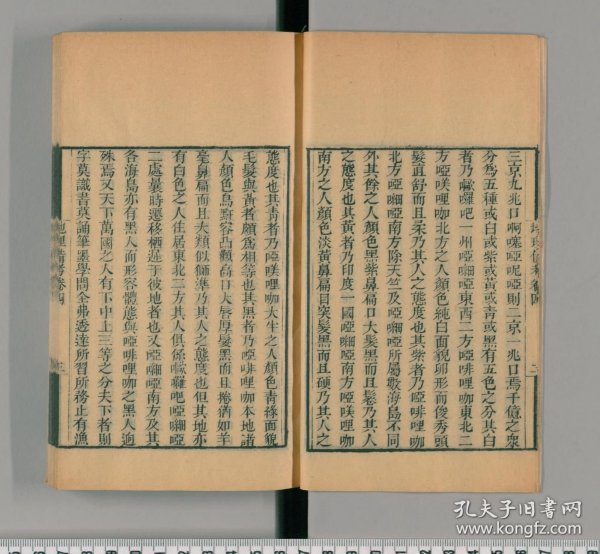 三京九兆口啊㗭啞呢啞則二京一兆口焉千億之衆
分為五種或白或紫或黃或青或黑有五色之分其白
者乃歐囉吧一州啞細啞東西二方啞啡哩咖東北二
方啞𠸄哩咖北方之人顏色純白面貌卵形而俊秀頭
髮直舒而且柔乃其人之態度也其紫者乃啞啡哩咖
北方啞細啞南方除天竺及啞細啞所屬數海島不同
外其餘之人顏色黑紫鼻扁口大髮黑而且鬈乃其人
之態度也其黃者乃印度一國啞細啞南方啞𠸄哩咖
南方之人顏色淡黃鼻扁目突髮黑而且硬乃其人之
地理備考卷四
二
態度也其青者乃啞𠸄哩咖大半之人顏色青綠面貌
毛髮與黃者頗為相等也其黑者乃啞啡哩咖本地諸
人顏色烏黔容凸顴高口大唇厚髮黑而且捲猶如羊
毫鼻扁而且大類似獅準乃其人之態度也但其地亦
有白色之人住居東北二方其人俱係歐囉吧啞細啞
二處曩時遷移栖莲于彼地者也又啞細啞南方及其
各海島亦有黑人而形容體態與啞啡哩咖之黑人迥
殊焉又天下萬國之人有下中上三等之分夫下者則
字莫識書莫誦筆墨學問全弗透達所習所務止有漁
地理備考卷四
三
孔夫子旧书网
www.kongfz.com
6 27 26 25 24 23 22 21 20 19 18
12 11 10 9 8 7 6 5